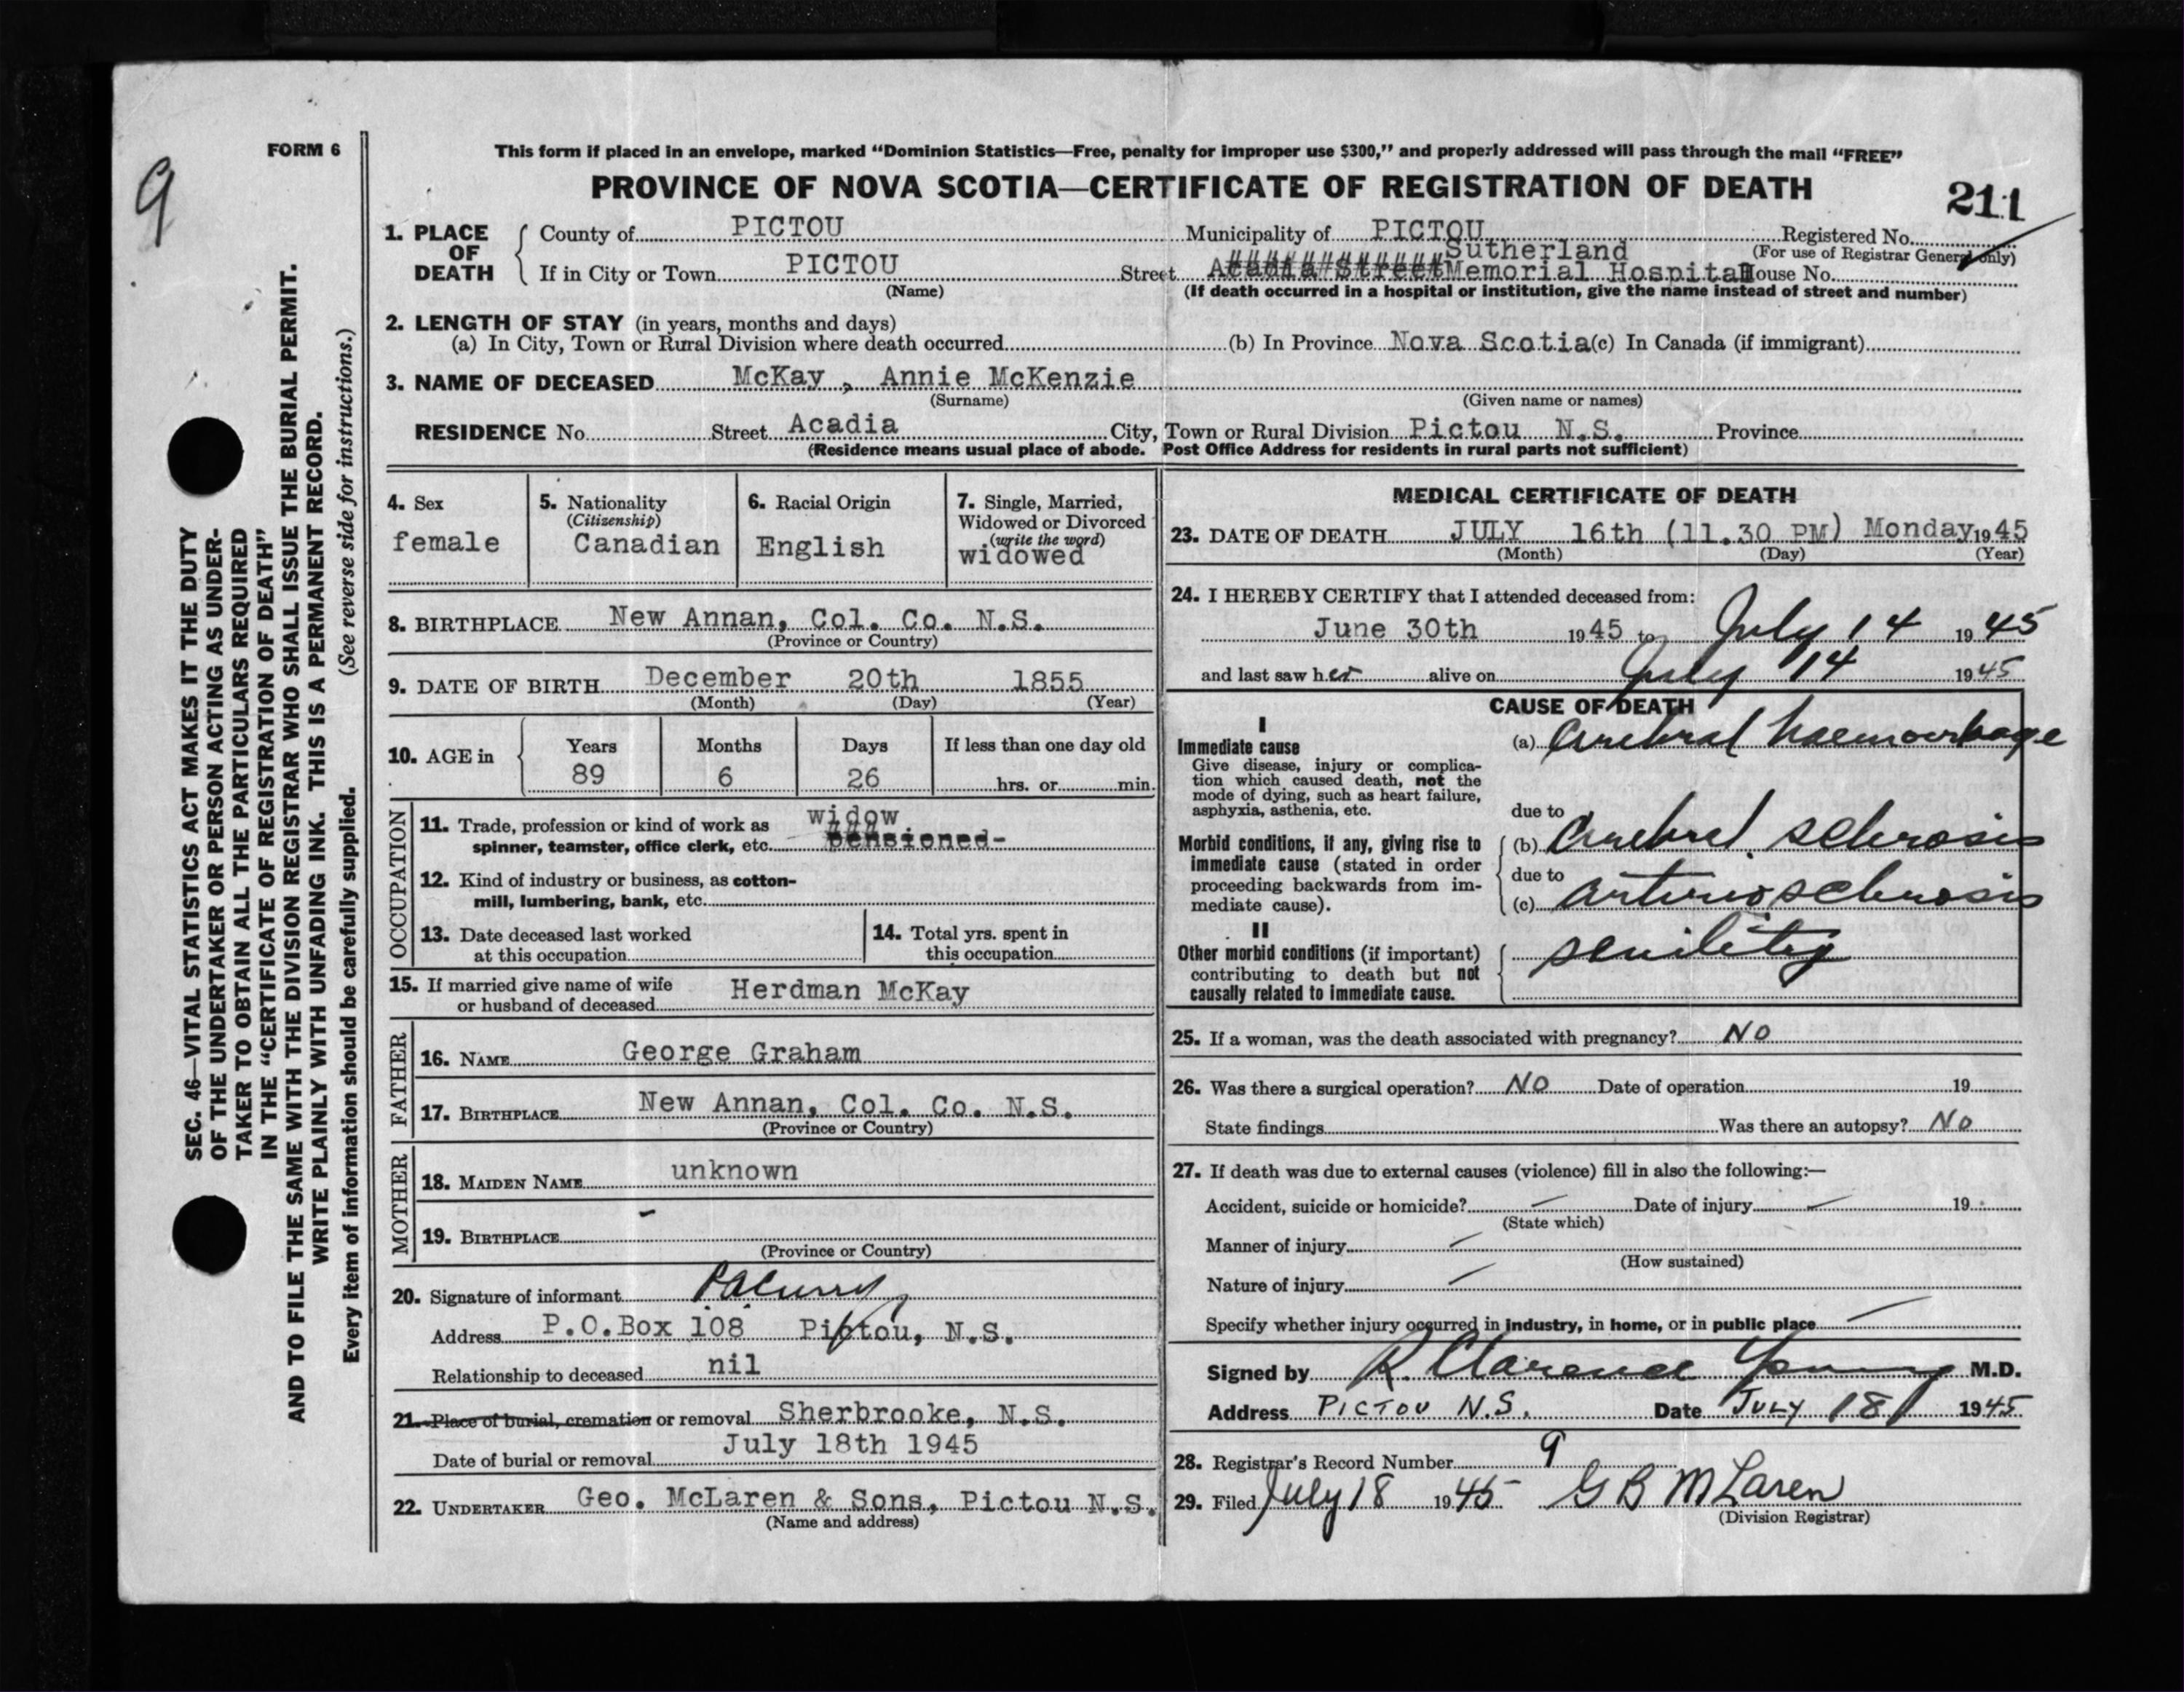 FORM 6
9
This form if placed in an envelope, marked “Dominion Statistics—Free, penalty for improper use $300,” and properly addressed will pass through the mail “FREE”
PROVINCE OF NOVA SCOTIA—CERTIFICATE OF REGISTRATION OF DEATH
211
1. PLACE OF DEATH
County of PICTOU Municipality of PICTOU Registered No.
(For use of Registrar General only)
Sutherland
If in City or Town PICTOU Street Acadia Street Memorial Hospital House No.
(Name) (If death occurred in a hospital or institution, give the name instead of street and number)
2. LENGTH OF STAY (in years, months and days)
(a) In City, Town or Rural Division where death occurred (b) In Province Nova Scotia (c) In Canada (if immigrant)
3. NAME OF DECEASED McKay , Annie McKenzie
(Surname) (Given name or names)
RESIDENCE No. Street Acadia City, Town or Rural Division Pictou N.S. Province
(Residence means usual place of abode. Post Office Address for residents in rural parts not sufficient)
4. Sex
female
5. Nationality
(Citizenship)
Canadian
6. Racial Origin
English
7. Single, Married,
Widowed or Divorced
(write the word)
widowed
8. BIRTHPLACE New Annan, Col. Co. N.S.
(Province or Country)
9. DATE OF BIRTH December 20th 1855
(Month) (Day) (Year)
10. AGE in
Years Months Days If less than one day old
89 6 26 hrs. or min.
OCCUPATION
widow
11. Trade, profession or kind of work as
spinner, teamster, office clerk, etc. pensioned-
12. Kind of industry or business, as cotton-
mill, lumbering, bank, etc.
13. Date deceased last worked
at this occupation
14. Total yrs. spent in
this occupation
15. If married give name of wife
or husband of deceased Herdman McKay
FATHER
16. NAME George Graham
17. BIRTHPLACE New Annan, Col. Co. N.S.
(Province or Country)
MOTHER
18. MAIDEN NAME unknown
19. BIRTHPLACE -
(Province or Country)
20. Signature of informant
Address P.O.Box 108 Pictou, N.S.
Relationship to deceased nil
21. Place of burial, cremation or removal Sherbrooke, N.S.
Date of burial or removal July 18th 1945
22. UNDERTAKER Geo. McLaren & Sons, Pictou N.S.
(Name and address)
MEDICAL CERTIFICATE OF DEATH
23. DATE OF DEATH JULY 16th (11.30 PM) Monday 1945
(Month) (Day) (Year)
24. I HEREBY CERTIFY that I attended deceased from:
June 30th 1945 to July 14 1945
and last saw her alive on July 14 1945
CAUSE OF DEATH
I
Immediate cause
Give disease, injury or complica-
tion which caused death, not the
mode of dying, such as heart failure,
asphyxia, asthenia, etc.
(a) Cerebral haemorrhage
due to
Morbid conditions, if any, giving rise to
immediate cause (stated in order
proceeding backwards from im-
mediate cause).
(b) Cerebral sclerosis
due to
(c) arteriosclerosis
II
Other morbid conditions (if important)
contributing to death but not
causally related to immediate cause.
senility
25. If a woman, was the death associated with pregnancy? NO
26. Was there a surgical operation? NO Date of operation 19
State findings Was there an autopsy? NO
27. If death was due to external causes (violence) fill in also the following:—
Accident, suicide or homicide? — Date of injury — 19
(State which)
Manner of injury —
(How sustained)
Nature of injury —
Specify whether injury occurred in industry, in home, or in public place —
Signed by R. Clarence Young M.D.
Address PICTOU N.S. Date JULY 18 1945
28. Registrar's Record Number 9
29. Filed July 18 1945 G B McLaren
(Division Registrar)
SEC. 46—VITAL STATISTICS ACT MAKES IT THE DUTY
OF THE UNDERTAKER OR PERSON ACTING AS UNDER-
TAKER TO OBTAIN ALL THE PARTICULARS REQUIRED
IN THE “CERTIFICATE OF REGISTRATION OF DEATH”
AND TO FILE THE SAME WITH THE DIVISION REGISTRAR WHO SHALL ISSUE THE BURIAL PERMIT.
WRITE PLAINLY WITH UNFADING INK. THIS IS A PERMANENT RECORD.
Every item of information should be carefully supplied. (See reverse side for instructions.)